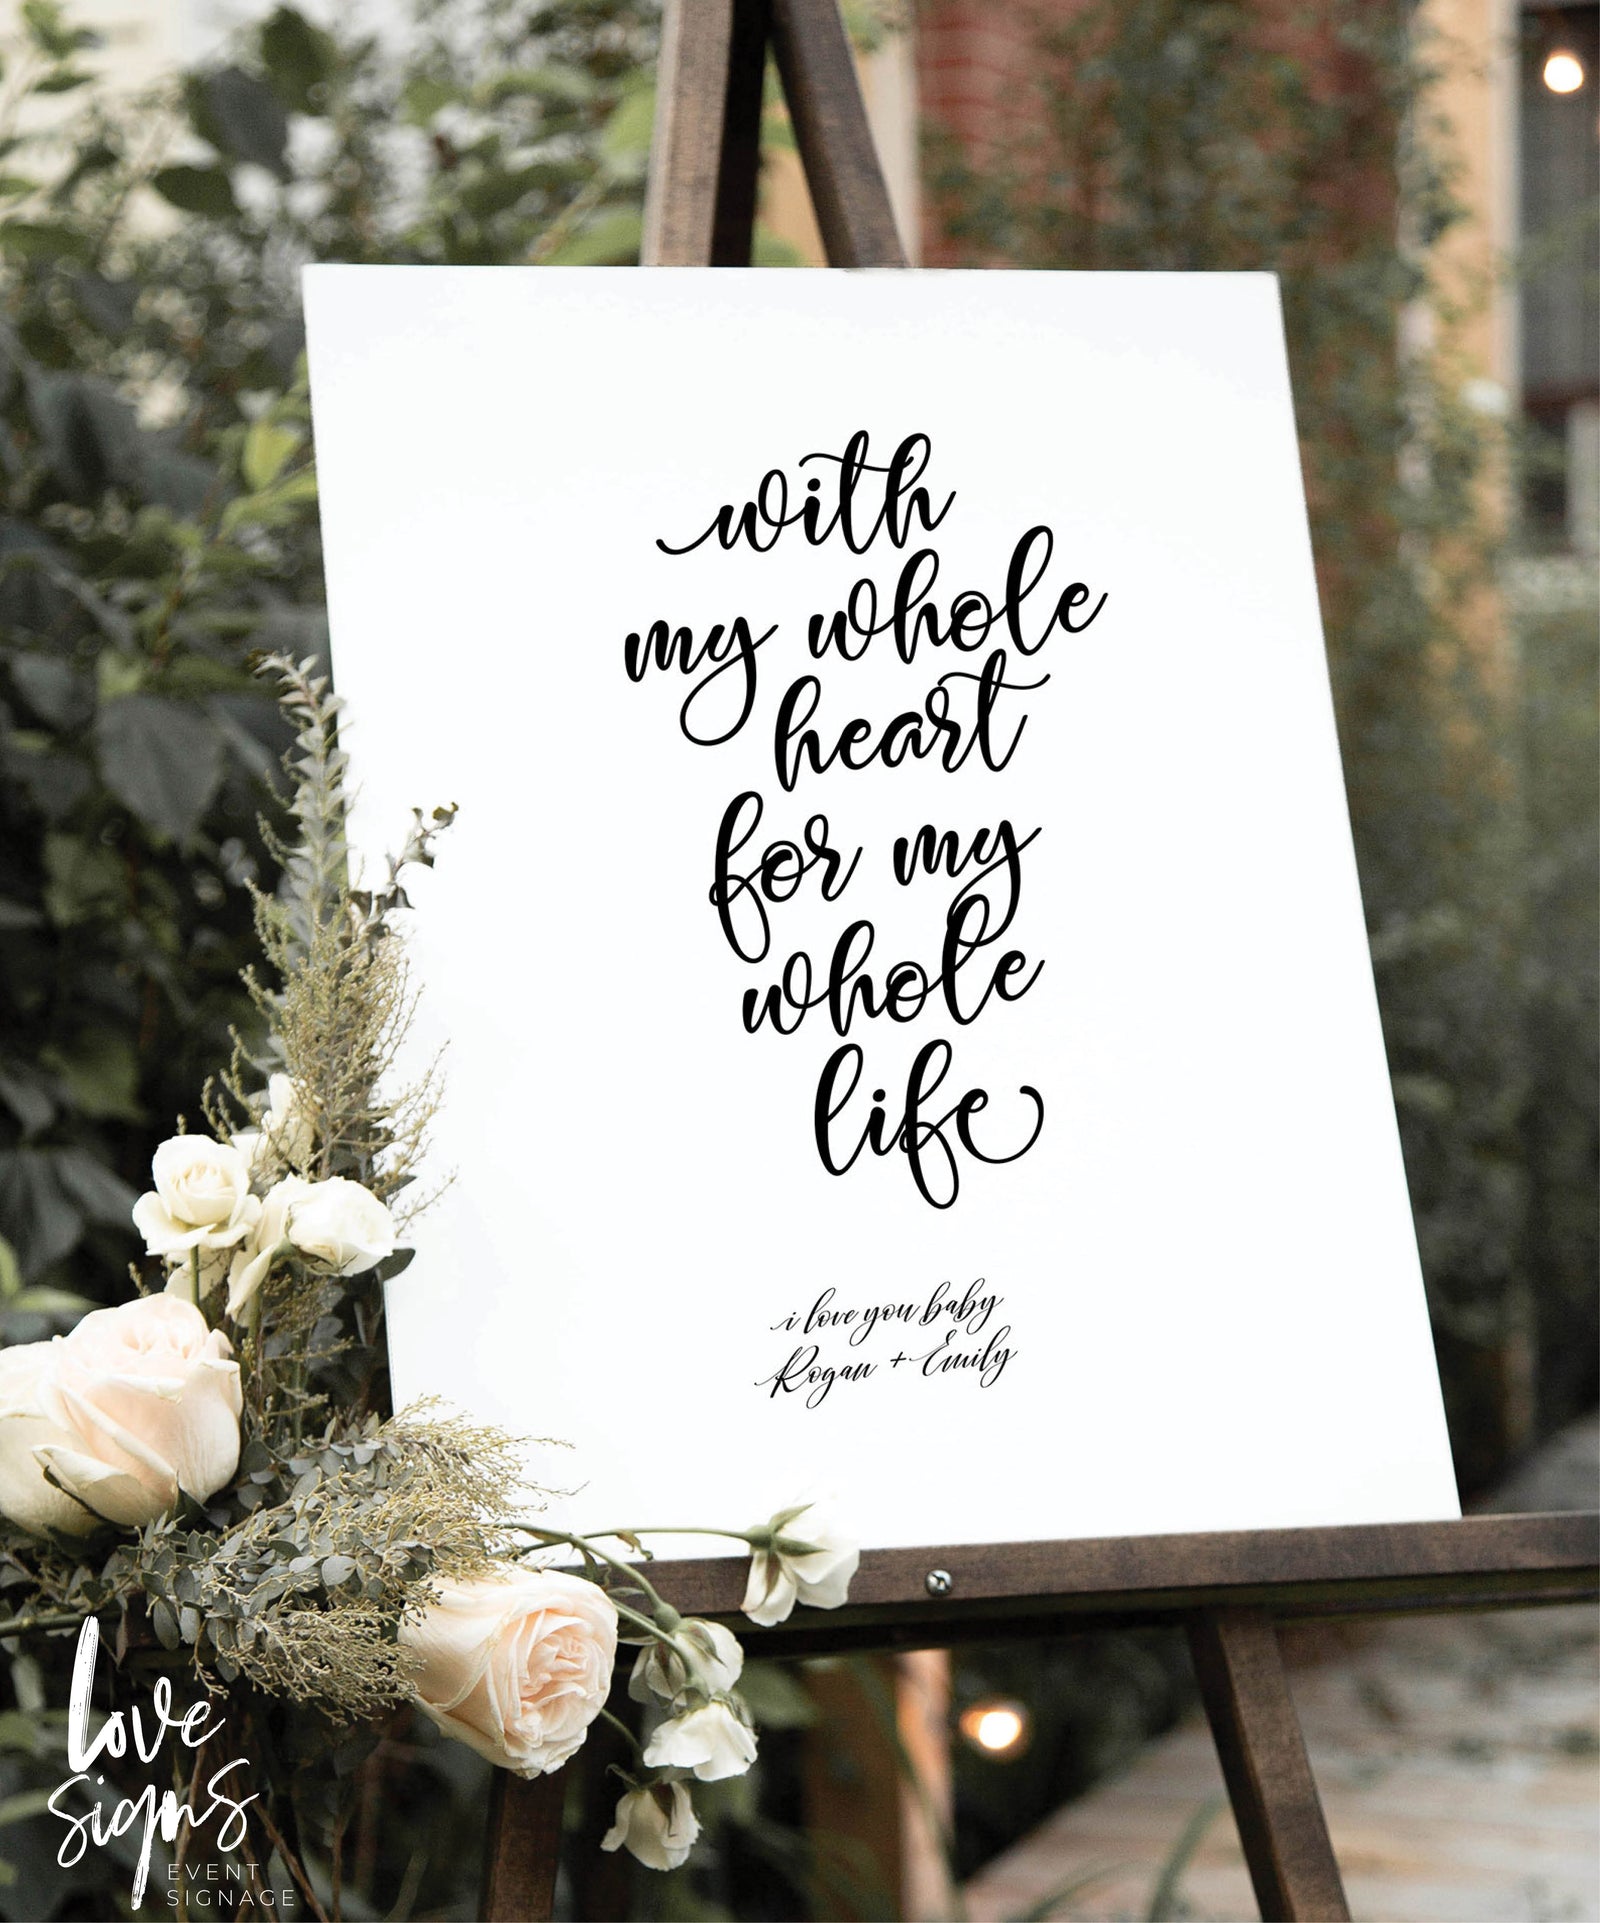 with
my whole
heart
for my
whole
life
i love you baby
Rogan + Emily
love
signs
EVENT
SIGNAGE